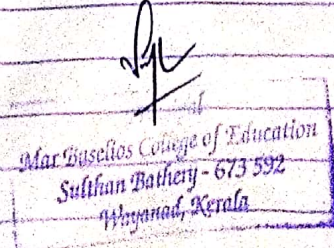 Mar Baselios College of Education
Sulthan Bathery - 673 592
Wayanad, Kerala